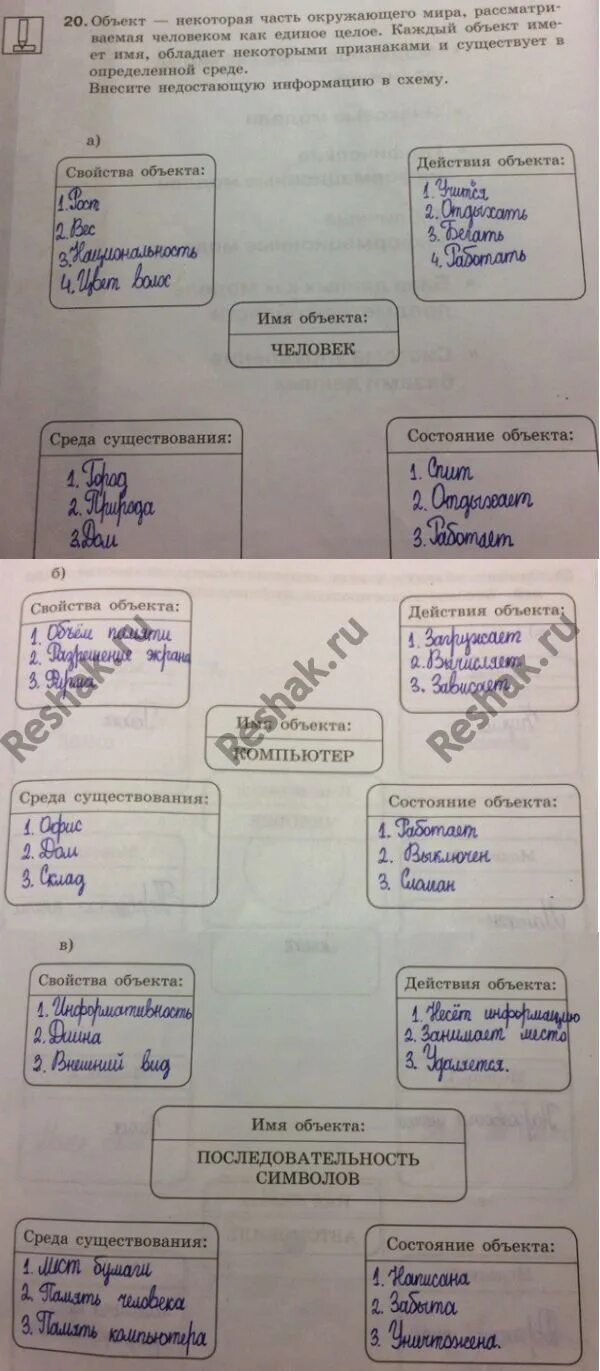 20. Объект — некоторая часть окружающего мира, рассматри-
ваемая человеком как единое целое. Каждый объект име-
ет имя, обладает некоторыми признаками и существует в
определенной среде.
Внесите недостающую информацию в схему.
а)
Свойства объекта:
1. Рост
2. Вес
3. Национальность
4. Цвет волос
Действия объекта:
1. Учится
2. Отдыхать
3. Бегать
4. Работать
Имя объекта:
ЧЕЛОВЕК
Среда существования:
1. Город
2. Природа
3. Дом
Состояние объекта:
1. Спит
2. Отдыхает
3. Работает
б)
Свойства объекта:
1. Объём памяти
2. Разрешение экрана
3. Фирма
Действия объекта:
1. Загружает
2. Вычисляет
3. Зависает
Имя объекта:
КОМПЬЮТЕР
Reshak.ru
Reshak.ru
Reshak.ru
Среда существования:
1. Офис
2. Дом
3. Склад
Состояние объекта:
1. Работает
2. Выключен
3. Сломан
в)
Свойства объекта:
1. Информативность
2. Длина
3. Внешний вид
Действия объекта:
1. Несёт информацию
2. Занимает место
3. Удаляется.
Имя объекта:
ПОСЛЕДОВАТЕЛЬНОСТЬ
СИМВОЛОВ
Среда существования:
1. Лист бумаги
2. Память человека
3. Память компьютера
Состояние объекта:
1. Написана
2. Забыта
3. Уничтожена.